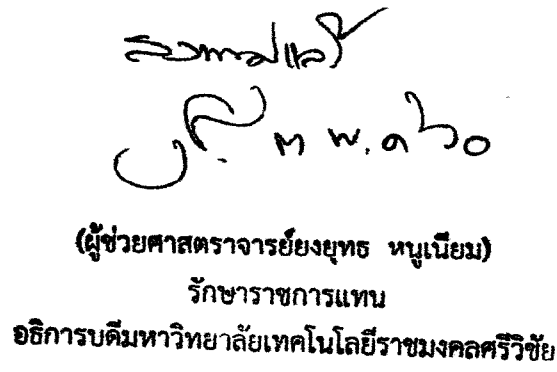 ลงนามแล้ว
ต พ.ค ๖๐
(ผู้ช่วยศาสตราจารย์ยงยุทธ หนูเนียม)
รักษาราชการแทน
อธิการบดีมหาวิทยาลัยเทคโนโลยีราชมงคลศรีวิชัย